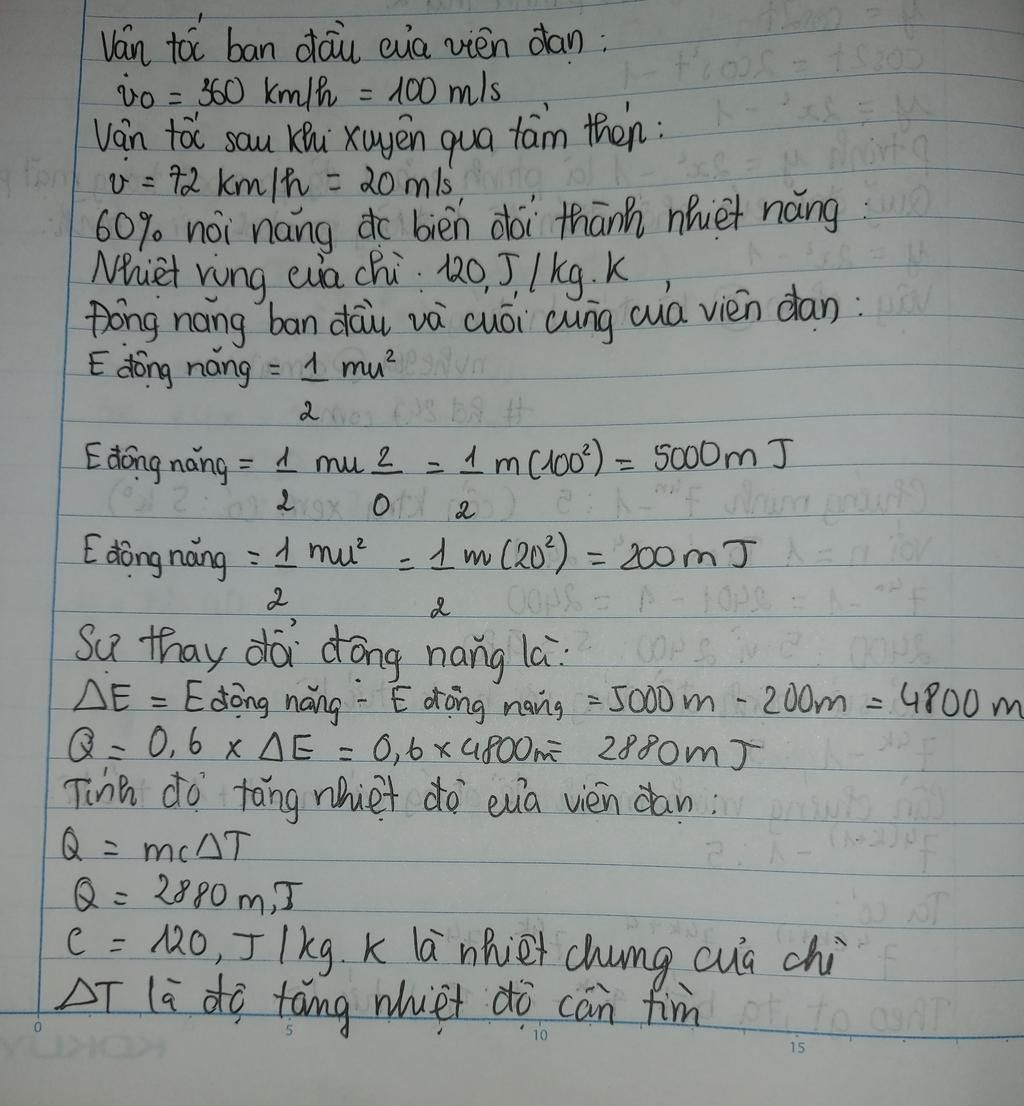 Vận tốc ban đầu của viên đạn :
v0 = 360 km/h = 100 m/s
Vận tốc sau khi xuyên qua tấm thép :
v = 72 km/h = 20 m/s
60% nôi năng đc biến đổi thành nhiệt năng :
Nhiệt rung của chì : 120, J/kg.K
Động năng ban đầu và cuối cùng của viên đạn :
E động năng = 1/2 mu²
E động năng = 1/2 mu 2/0 = 1/2 m(100²) = 5000m J
E động năng = 1/2 mu² = 1/2 m(20²) = 200m J
Sự thay đổi động năng là :
ΔE = E động năng - E động năng = 5000m - 200m = 4800m
Q = 0,6 x ΔE = 0,6 x 4800m = 2880m J
Tính độ tăng nhiệt độ của viên đạn :
Q = mcΔT
Q = 2880 m, J
C = 120, J/kg.K là nhiệt chung của chì
ΔT là độ tăng nhiệt độ cần tìm
0 5 10 15